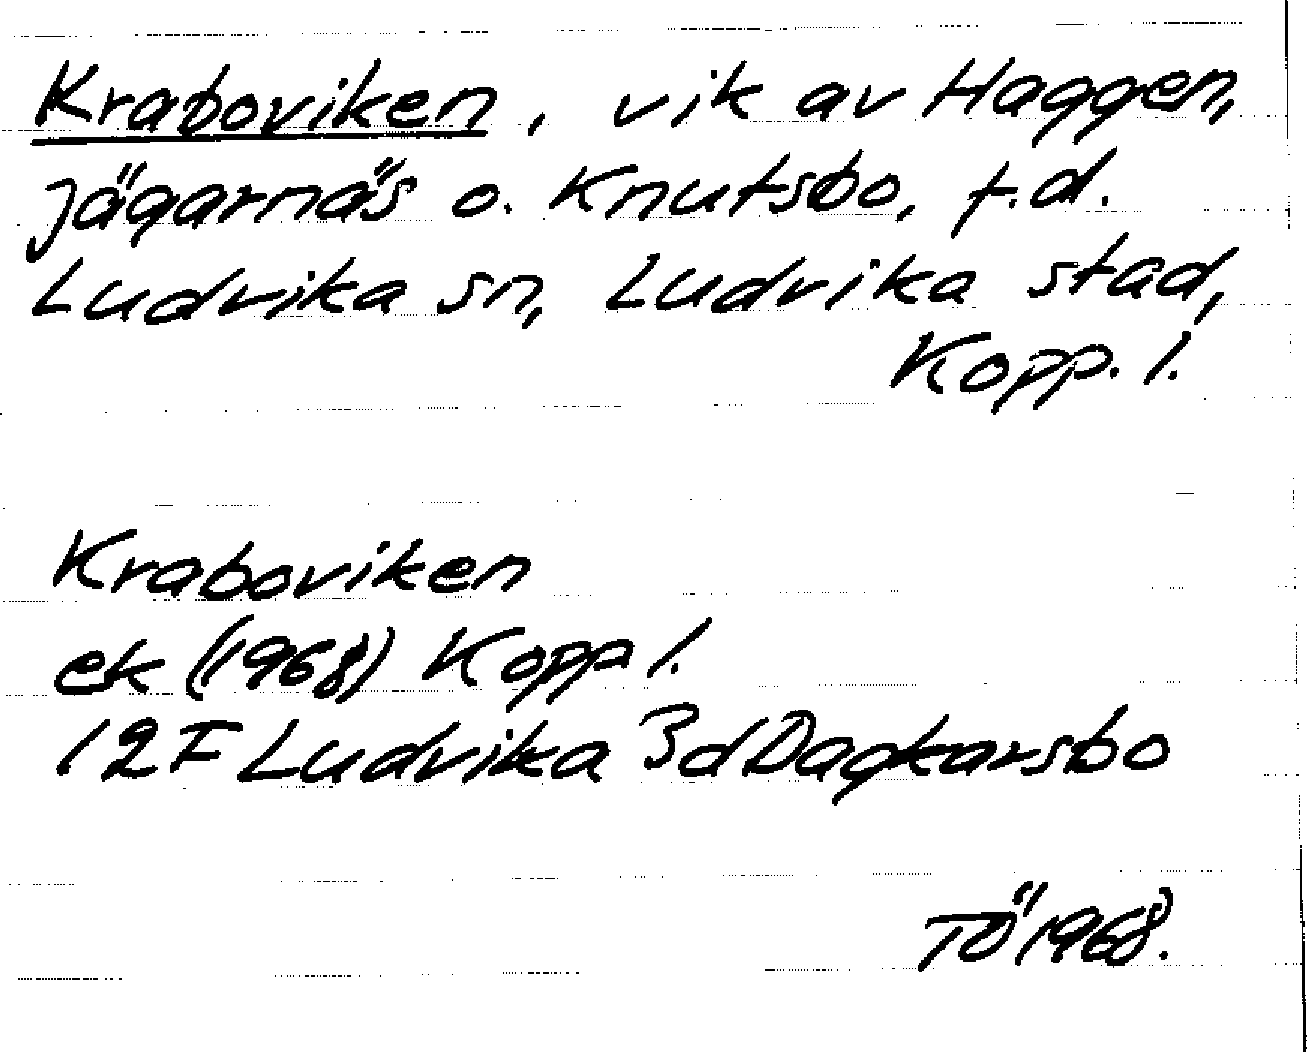 Kraboviken, vik av Haggen,
Jägarnäs o. Knutsbo, f.d.
Ludvika sn, Ludvika stad,
Kopp. l.
Kraboviken
ek (1968) Kopp l.
12F Ludvika 3d Dagkarsbo
TÖ 1968.